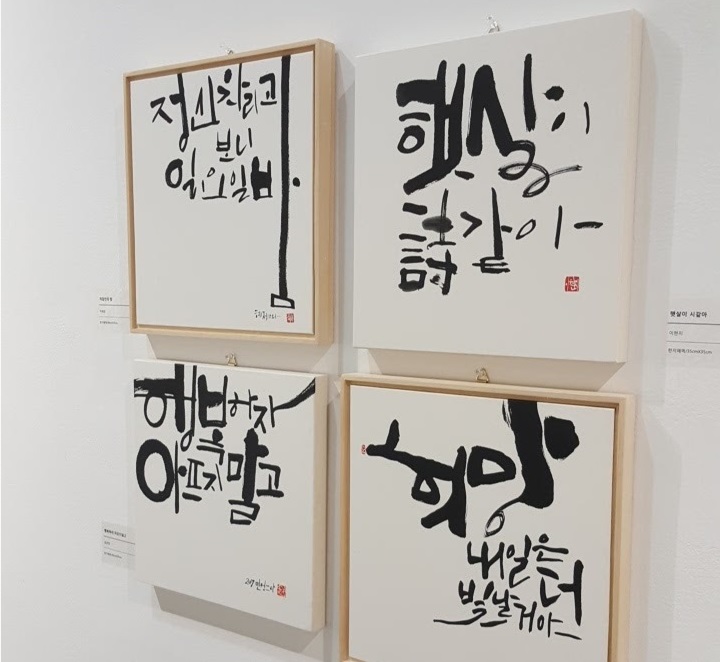 정신차리고
보니
일요일밤.
햇살이
詩같아-
행복하자
아프지말고
희망
내일은 더
빛날거야
햇살이 시같아